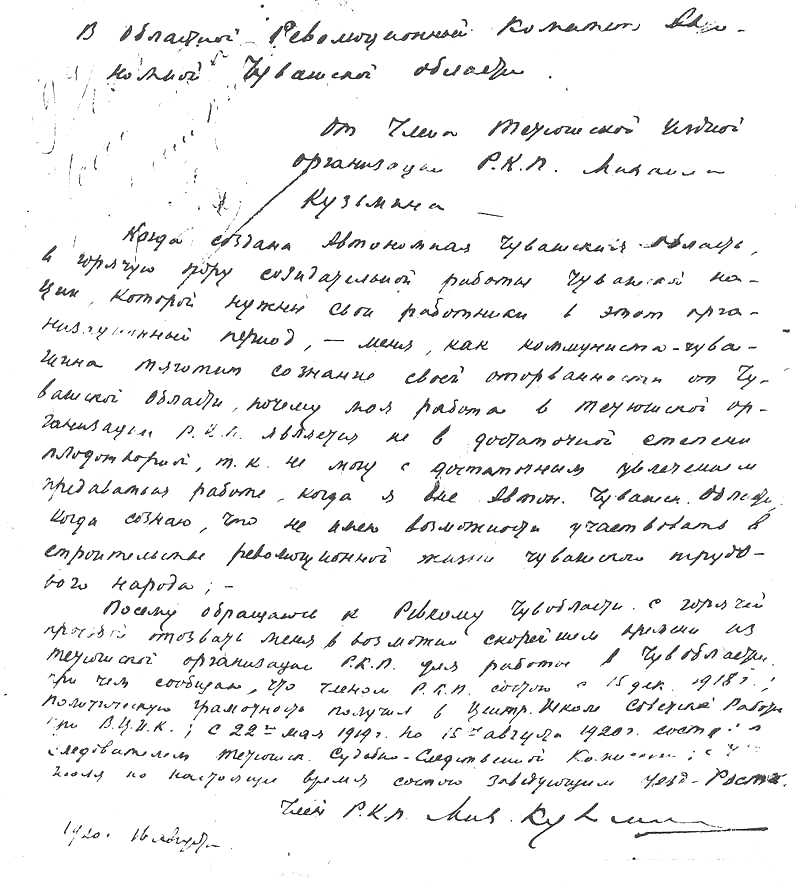 В Областной Революционный Комитет Авто-
номной Чувашской области.
От Члена Тетюшской Уездной
организации Р.К.П. Михаила
Кузьмина —
Когда создана Автономная Чувашская Область,
в горячую пору созидательной работы Чувашской на-
ции, которой нужны свои работники в этот орга-
низационный период, — меня, как коммуниста-чува-
шина тяготит сознание своей оторванности от Чу-
вашской Области, почему моя работа в Тетюшской ор-
ганизации Р.К.П. является не в достаточной степени
плодотворной, т.к. не могу с достаточным увлечением
предаваться работе, когда я вне Автон. Чувашск. Области,
когда сознаю, что не имею возможности участвовать в
строительстве революционной жизни чувашского трудо-
вого народа; –
Посему обращаюсь к Ревкому Чувобласти с горячей
просьбой отозвать меня в возможно скорейшем времени из
Тетюшской организации Р.К.П. для работы в Чувобласти.
При чем сообщаю, что членом Р.К.П. состою с 15 дек. 1918 г.;
политическую грамотность получил в Центр. Школе Советской Работы
при В.Ц.И.К.; с 22го мая 1919г. по 15го августа 1920г. состоял
следователем Тетюшск. Судебно-Следственной Комиссии; с
июля по настоящее время состою заведующим Уезд-Роста.
Член Р.К.П. Мих. Кузьмин
1920г. 16 августа